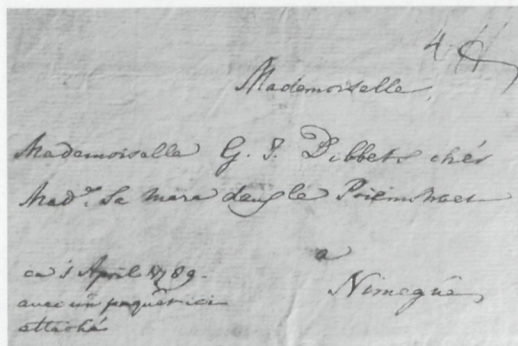 4
Mademoiselle
Mademoiselle G. J. Dibbets chés
Mad.e Sa mera dans le Priemstraet
a
Nimegue
ce 1 April 1789.
avec un paquet ici
attaché